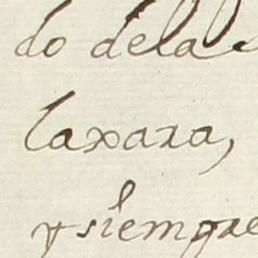 do dela
laxara,
y siempre